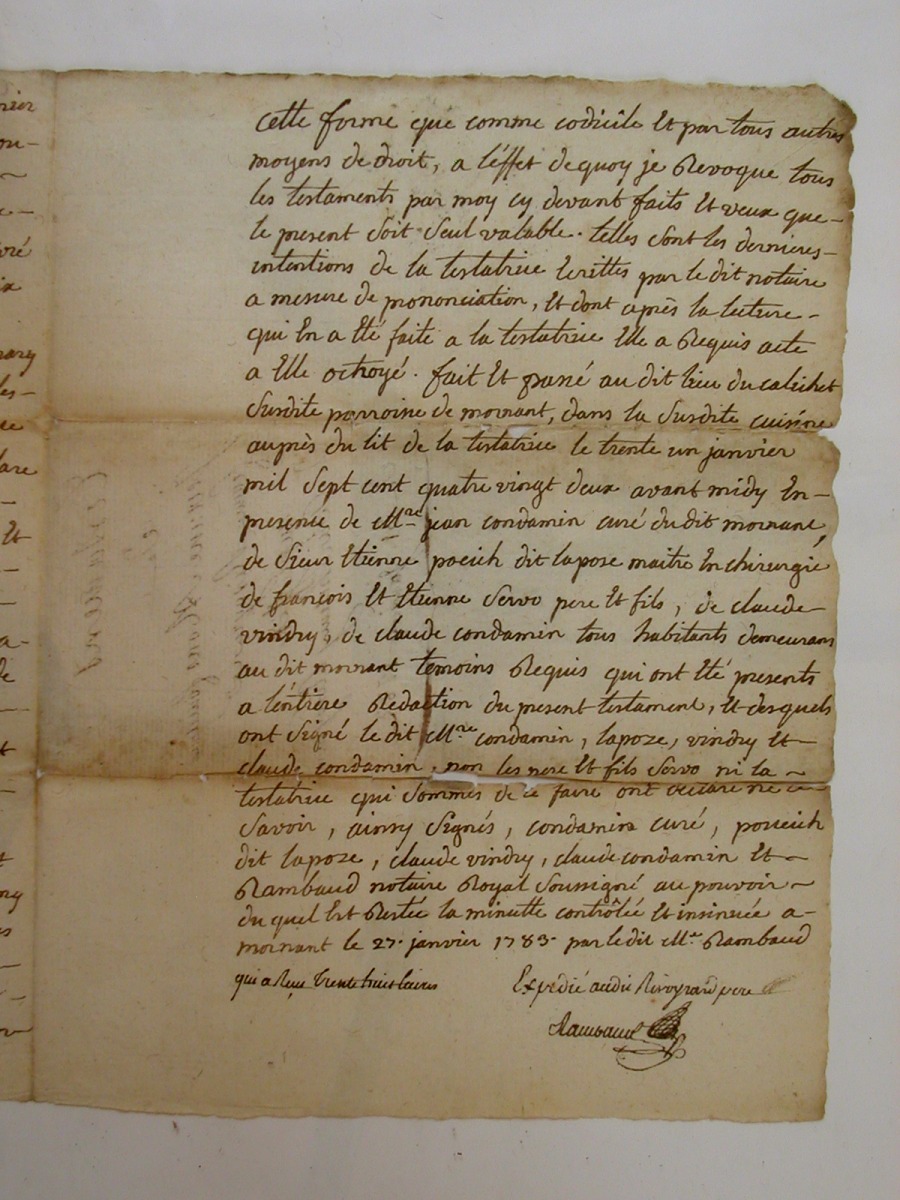 cette forme que comme codicile Et par tous autres
moyens de droit, a L'éffet de quoy je Revoque tous
les testaments par moy cy devant faits Et veux que
le present soit seul valable. telles sont les dernieres
intentions de la testatrice Ecrittes par le dit notaire
a mesure de prononciation, Et dont après la lecture
qui En a Eté faite a la testatrice Elle a Requis acte
a Elle octroyé. fait Et passé au dit lieu du
susdite parroisse de mornant, dans la susdite cuisine
auprès du lit de la testatrice le trente un janvier
mil sept cent quatre vingt deux avant midy En
presence de M.re jean condamin curé du dit mornant,
de sieur Etienne dit lapoze maitre En chirurgie
de francois Et Etienne Servo pere Et fils, de claude
vindry, de claude condamin tous habitants demeurans
au dit mornant temoins Requis qui ont Eté presents
a l'entiere Redaction du present testament, Et desquels
ont signé le dit M.re condamin, lapoze, vindry Et
claude condamin, non les pere Et fils Servo ni la
testatrice qui sommés de ce faire ont déclaré ne
savoir, ainsy signés, condamin curé,
dit lapoze, claude vindry, claude condamin Et
Rambaud notaire Royal soussigné au pouvoir
du quel Est Restée la minutte contrôlée Et insinuée a
mornant le 27. janvier 1783. par le dit M.e Rambaud
qui a Reçu trente huit livres
Expedié audit Rivoyrard pere
Rambaud